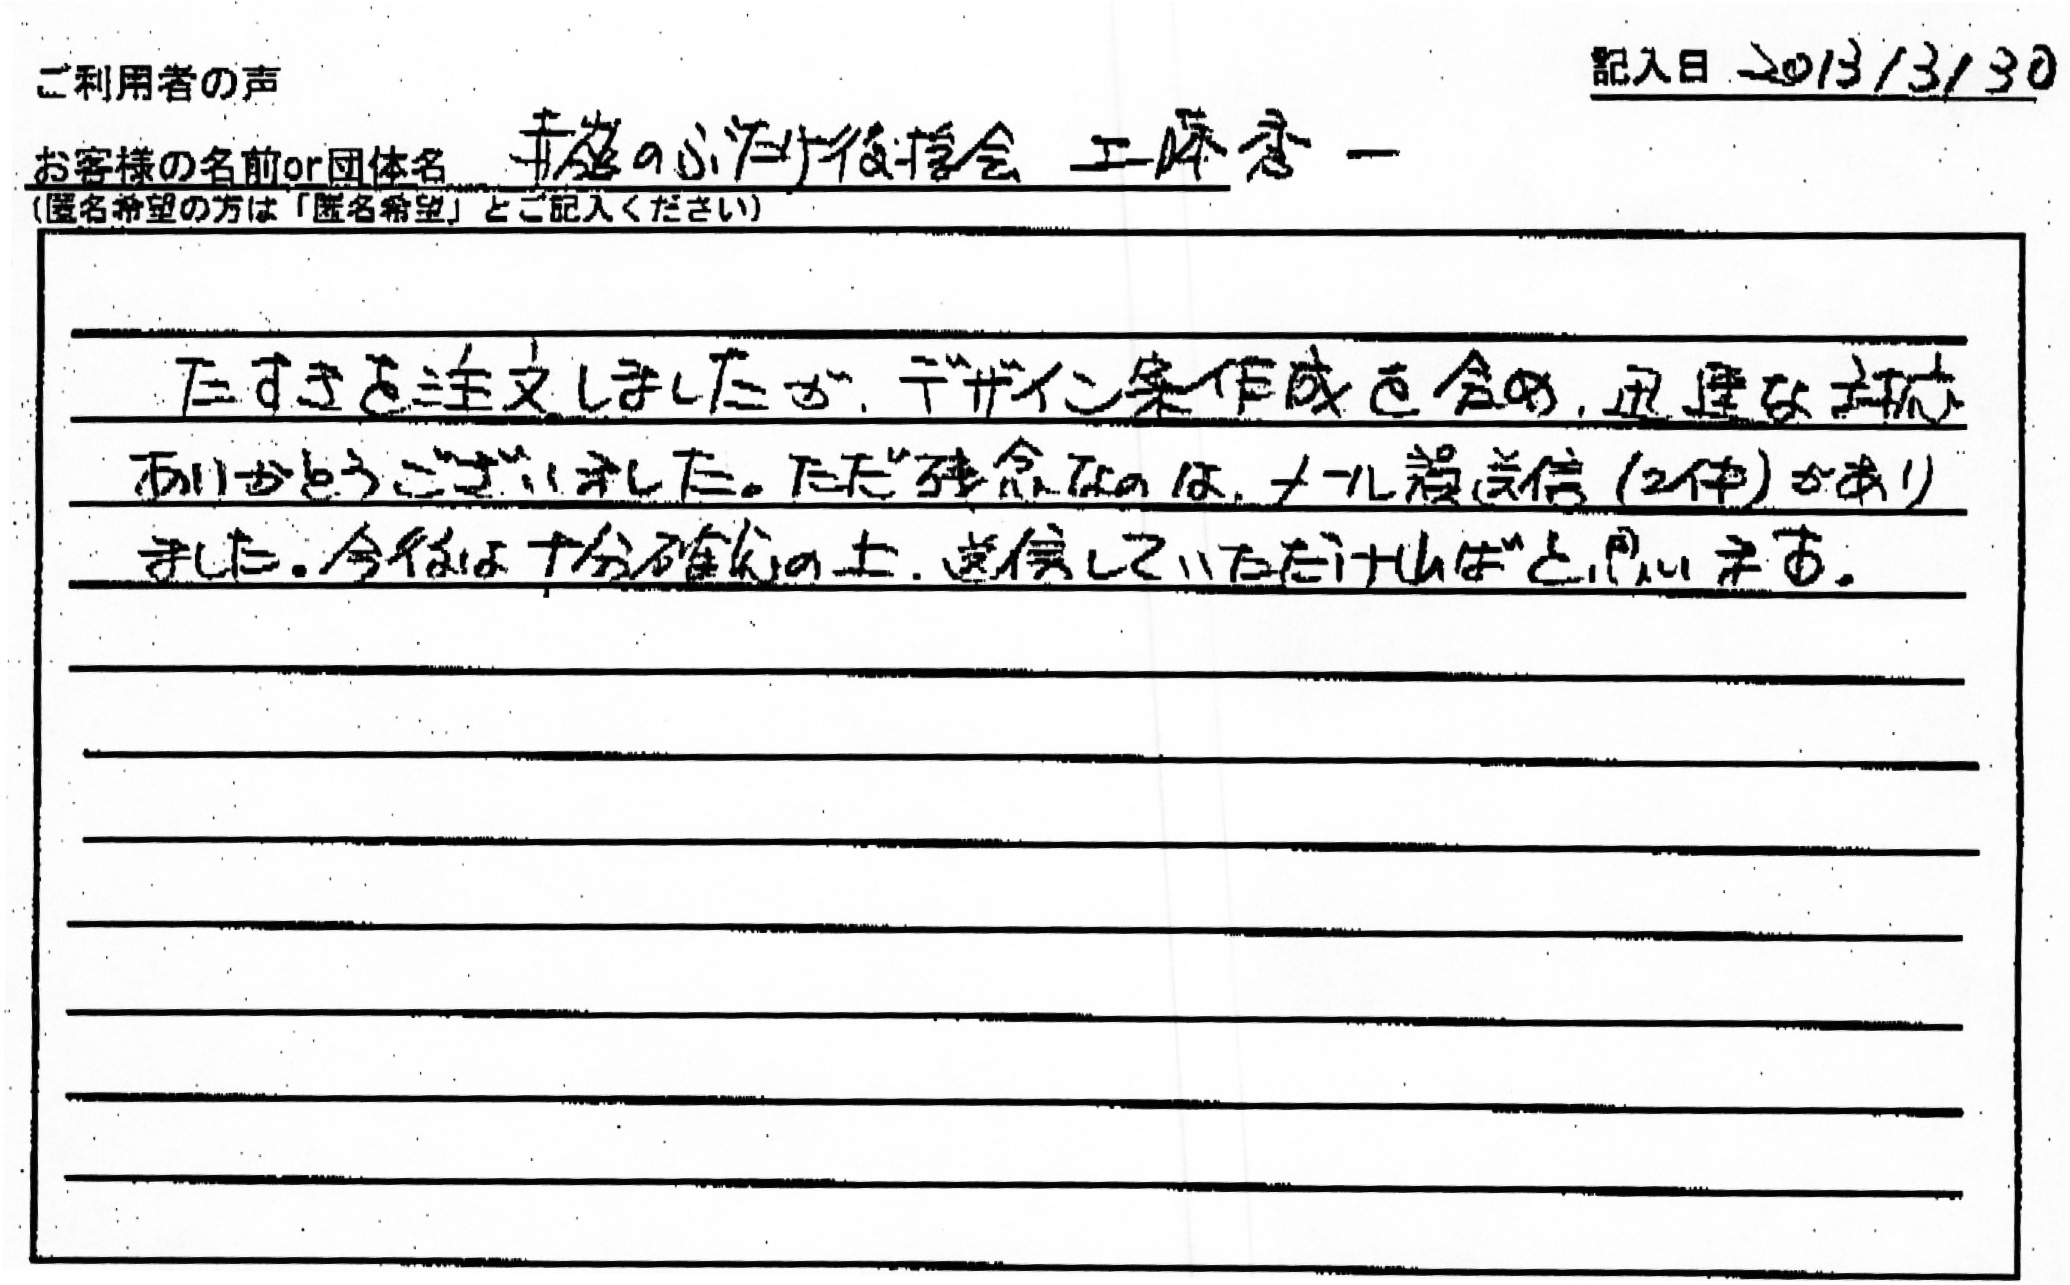 ご利用者の声
記入日 2013/3/30
お客様の名前or団体名 赤嶺のぶたけ後援会 工藤秀一
(匿名希望の方は「匿名希望」とご記入ください)
たすきを注文しましたが、デザイン案作成を含め、迅速な対応
ありがとうございました。ただ残念なのは、メール誤送信(2件)があり
ました。今後は十分確認の上、送信していただければと思います。